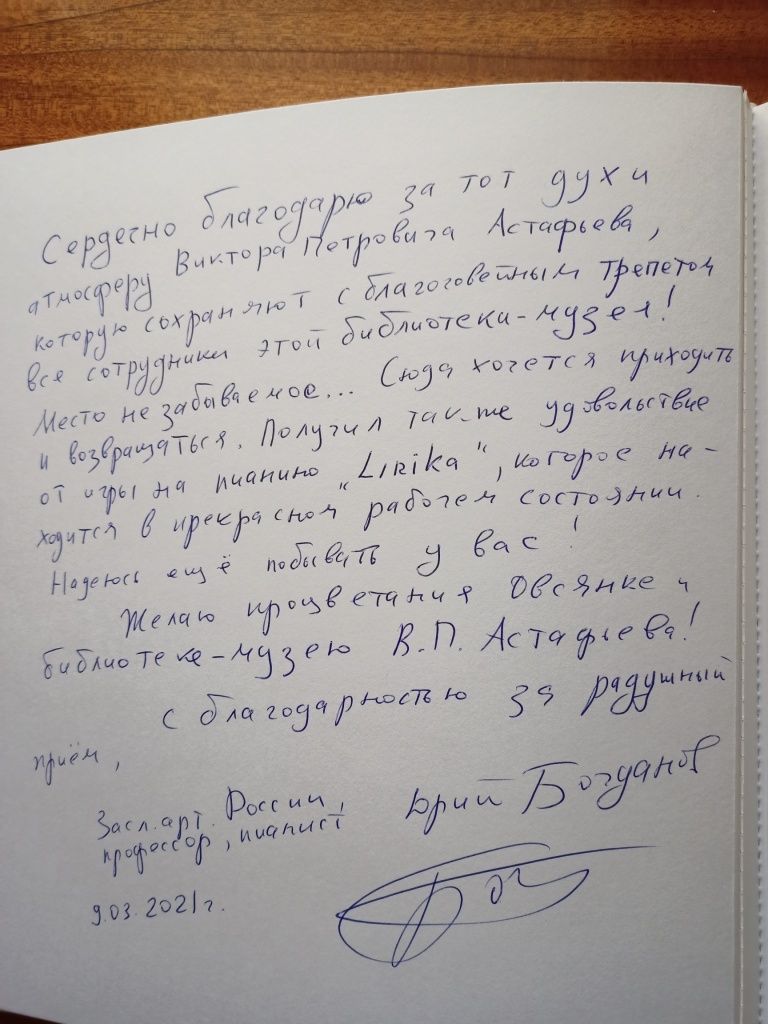 Сердечно благодарю за тот дух и
атмосферу Виктора Петровича Астафьева,
которую сохраняют с благоговейным трепетом
все сотрудники этой библиотеки-музея!
Место не забываемое... Сюда хочется приходить
и возвращаться. Получил так-же удовольствие
от игры на пианино "Lirika", которое на-
ходится в прекрасном рабочем состоянии.
Надеюсь ещё побывать у вас!
Желаю процветания Овсянке и
библиотеке-музею В.П. Астафьева!
С благодарностью за радушный
приём,
Засл.арт. России, Юрий Богданов
профессор, пианист
9.03.2021г.